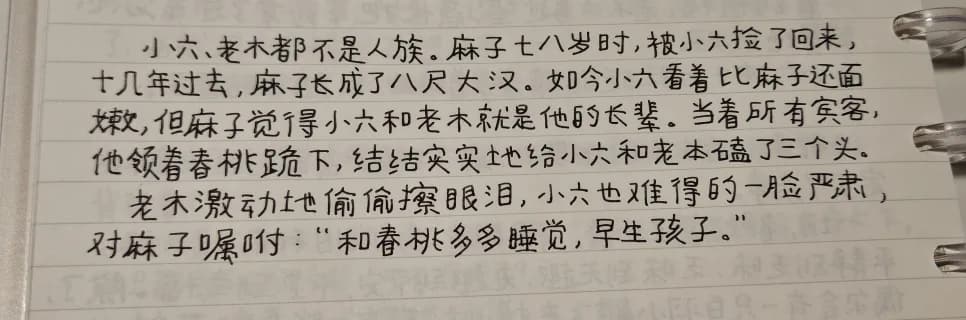 小六、老木都不是人族。麻子七八岁时,被小六捡了回来,
十几年过去,麻子长成了八尺大汉。如今小六看着比麻子还面
嫩,但麻子觉得小六和老木就是他的长辈。当着所有宾客,
他领着春桃跪下,结结实实地给小六和老木磕了三个头。
老木激动地偷偷擦眼泪,小六也难得的一脸严肃,
对麻子嘱咐:“和春桃多多睡觉,早生孩子。”